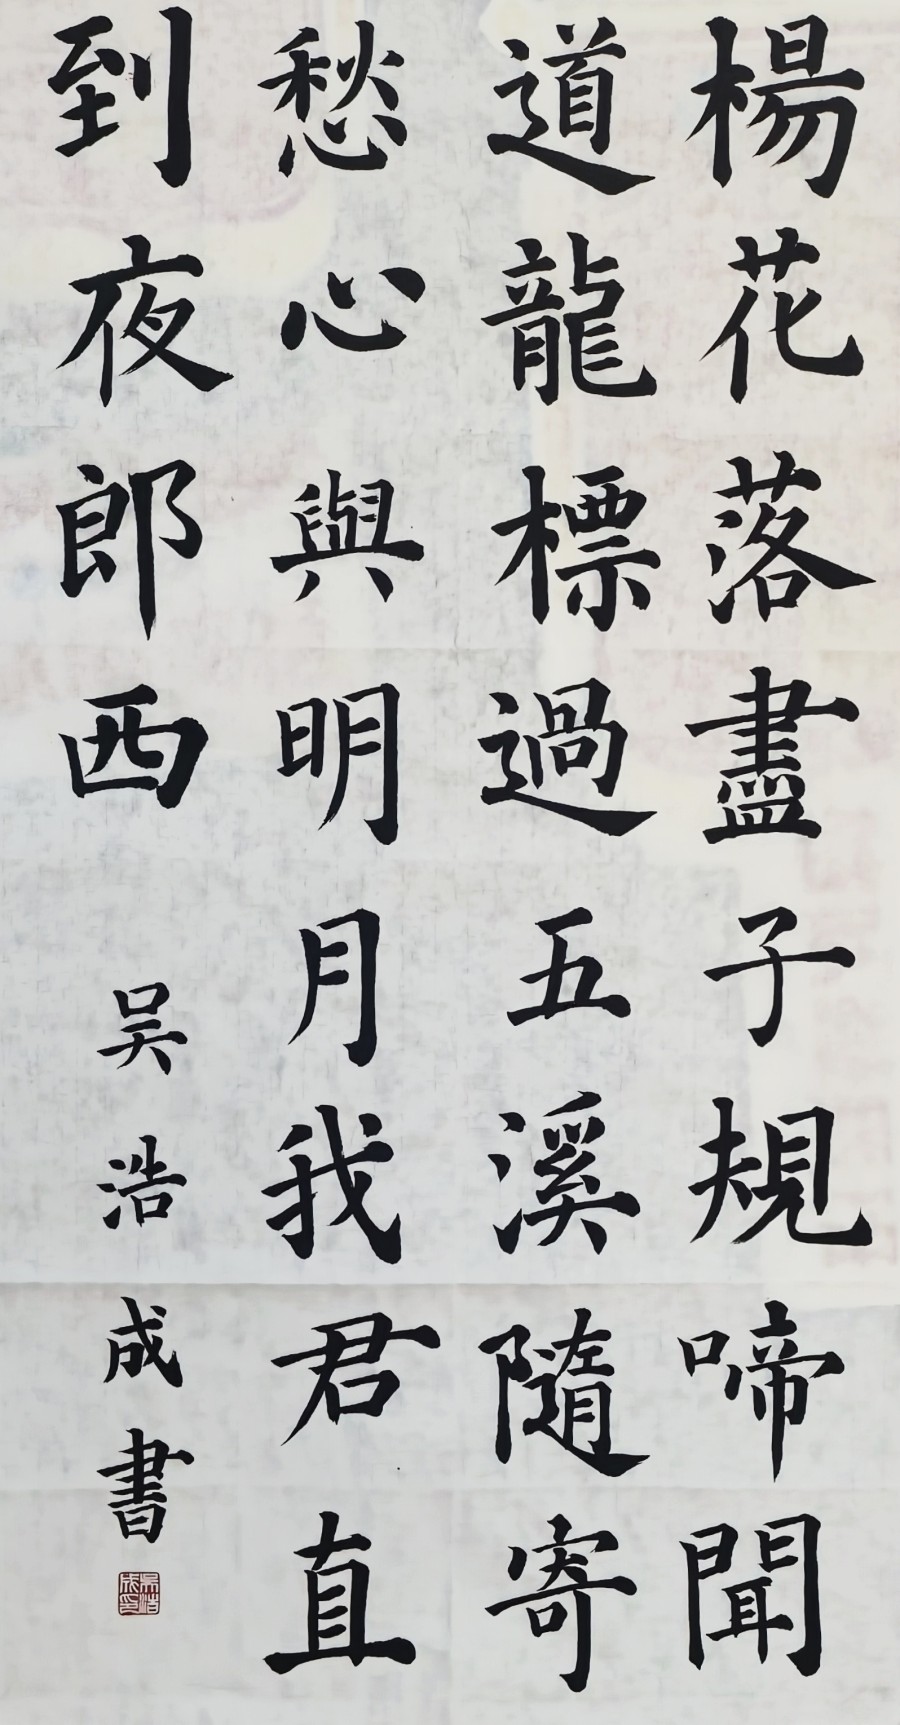 楊花落盡子規啼聞
道龍標過五溪隨寄
愁心與明月我君直
到夜郎西
吴浩成書
吴浩成印